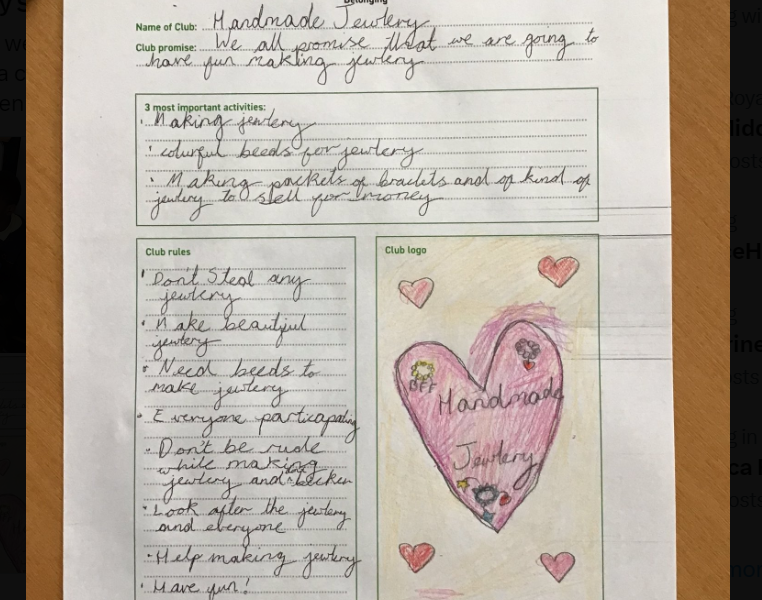 Belonging
Name of Club: Handmade Jewtlery
Club promise: We all promise that we are going to
have fun making jewtlery
3 most important activities:
· Making jewtlery
· colurful beeds for jewtlery
· Making packets of braclets and of kind of
jewtlery to stell for money
Club rules
· Don't Steal any
jewtlery
· Make beautiful
jewtlery
· Need beeds to
make jewtlery
· Everyone particapating
· Don't be rude
while making
jewtlery and
· Look after the jewtlery
and everyone
· Help making jewtlery
· Have fun!
Club logo
BFF
Handmade
Jewtlery